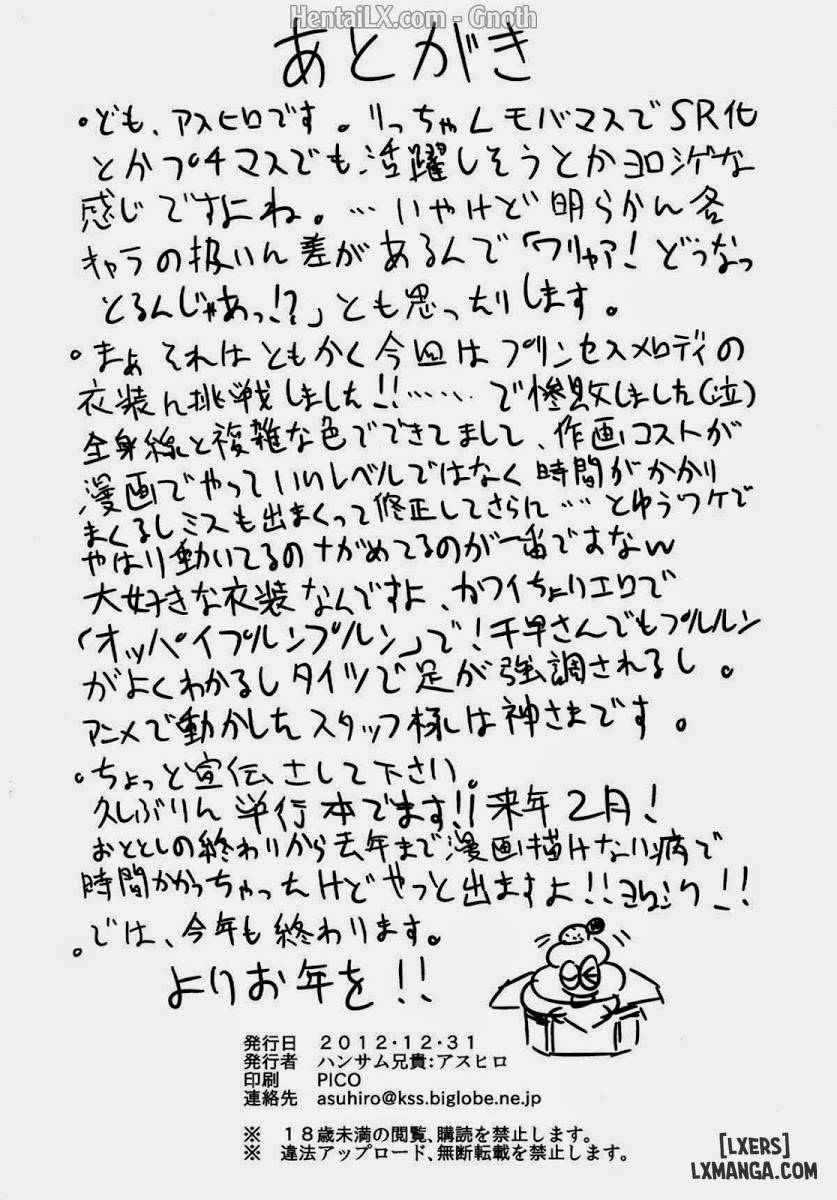 HentaiLX.com - Gnoth
あとがき
・ども、アスヒロです。りっちゃんモバマスでSR化
とかプチマスでも活躍しそうとかヨロシゲな
感じですよね。…いやけど明らかん各
キャラの扱いん差があるんで「ワリャア!どうなっ
とるんじゃあっ!?」とも思ったりします。
・まぁそれはともかく今回はプリンセスメロディの
衣装ん挑戦しました!!……で惨敗しました(泣)
全身線と複雑な色でできてまして、作画コストが
漫画でやっていいレベルではなく時間がかかり
まくるしミスも出まくって修正してさらに…とゆうワケで
やはり動いてるのながめてるのが一番ですなん
大好きな衣装なんですよ、カワイイちょりエロで
「オッパイプルンプルン」で!千早さんでもプルルン
がよくわかるしタイツで足が強調されるし。
アニメで動かしたスタッフ様は神さまです。
・ちょっと宣伝さして下さい。
久しぶりん単行本でます!!来年2月!
おととしの終わりから去年まで漫画描けない病で
時間かかっちゃったけどやっと出ますよ!!ヨロシク!!
。では、今年も終わります。
よりお年を!!
発行日 2012・12・31
発行者 ハンサム兄貴:アスヒロ
印刷 PICO
連絡先 asuhiro@kss.biglobe.ne.jp
※ 18歳未満の閲覧、購読を禁止します。
※ 違法アップロード、無断転載を禁止します。
[LXERS]
LXMANGA.COM